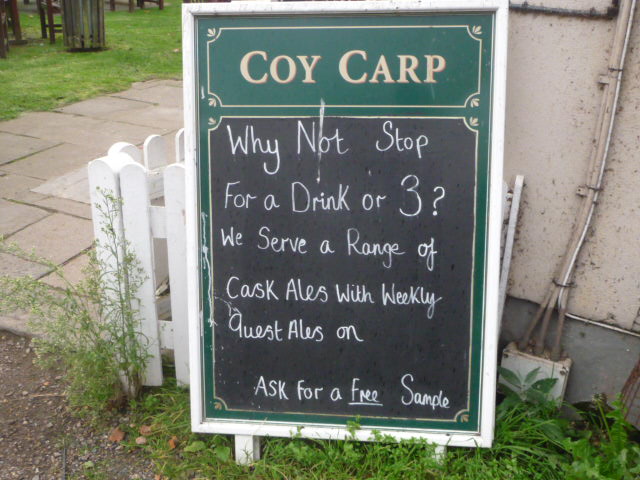 COY CARP
Why Not Stop
For a Drink or 3?
We Serve a Range of
Cask Ales With Weekly
Guest Ales on
Ask For a Free Sample